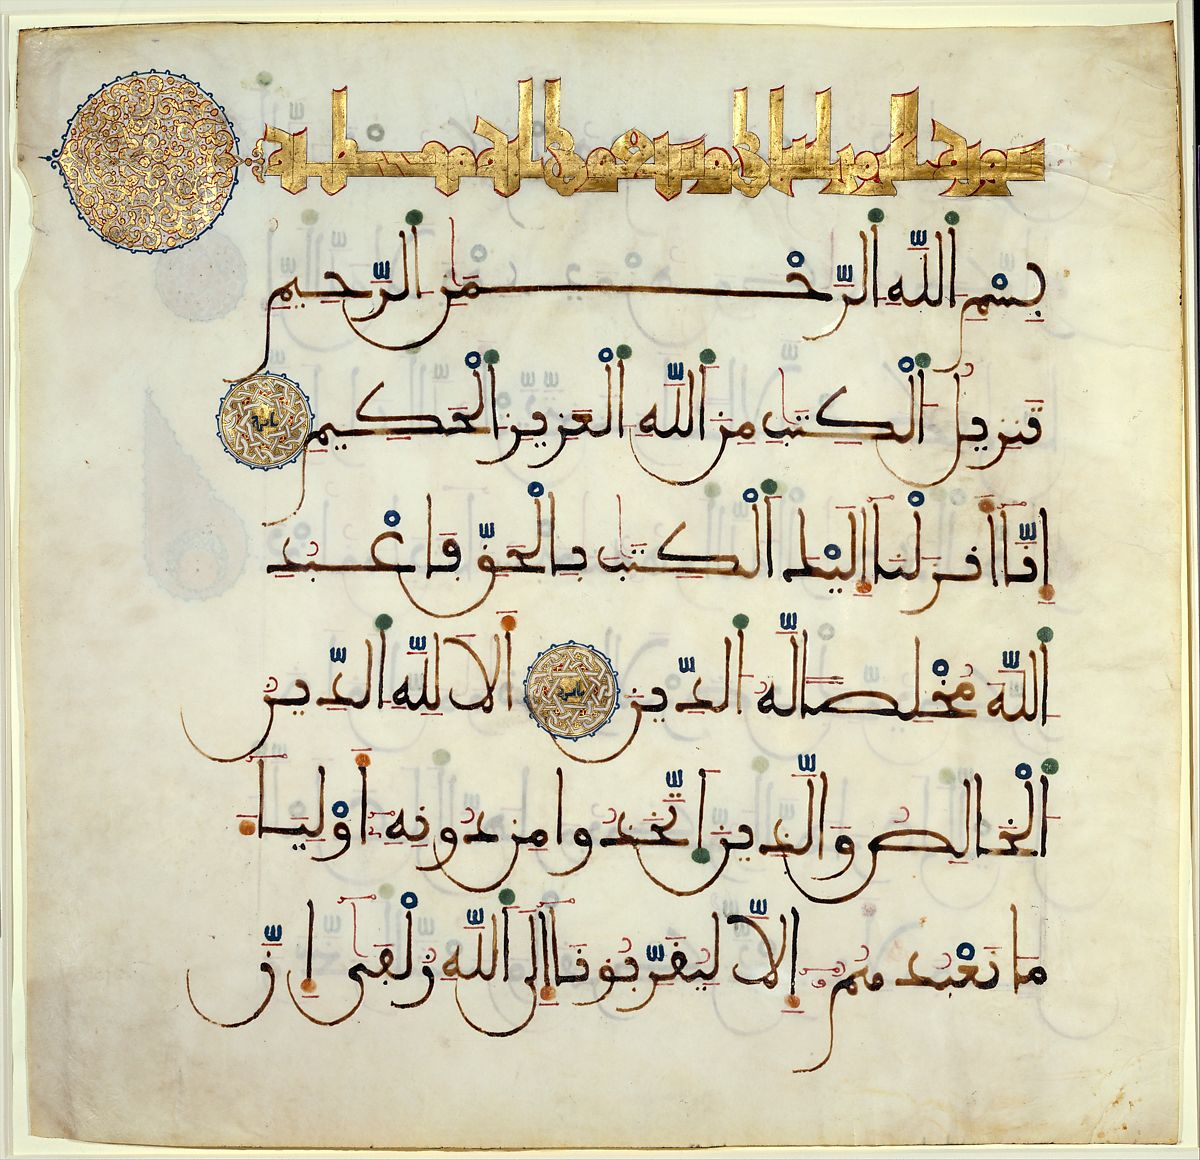 سورة الزمر
بِسْمِ اللَّهِ الرَّحْمَٰنِ الرَّحِيمِ
تَنزِيلُ الْكِتَٰبِ مِنَ اللَّهِ الْعَزِيزِ الْحَكِيمِ
إِنَّا أَنزَلْنَا إِلَيْكَ الْكِتَٰبَ بِالْحَقِّ فَاعْبُدِ
اللَّهَ مُخْلِصًا لَهُ الدِّينَ أَلَا لِلَّهِ الدِّينُ
الْخَالِصُ وَالَّذِينَ اتَّخَذُوا مِن دُونِهِ أَوْلِيَاءَ
مَا نَعْبُدُهُمْ إِلَّا لِيُقَرِّبُونَا إِلَى اللَّهِ زُلْفَىٰ إِنَّ